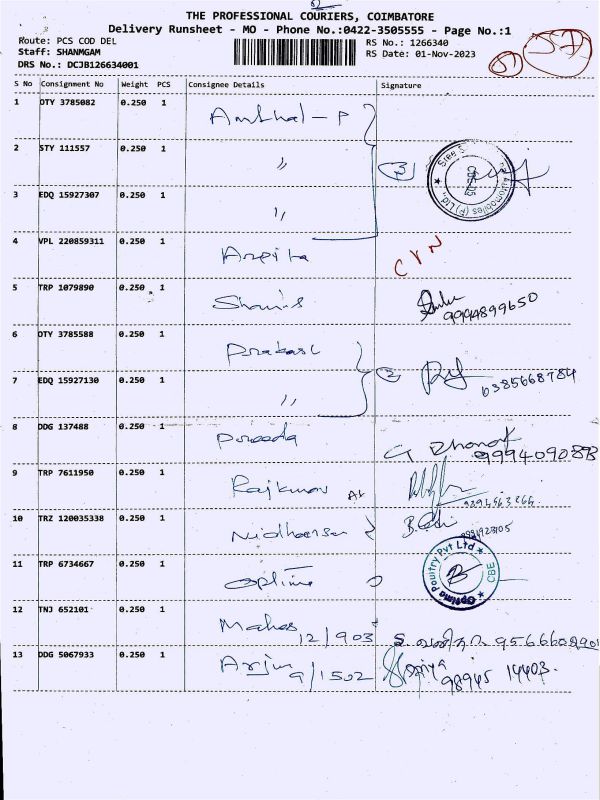 THE PROFESSIONAL COURIERS, COIMBATORE
Delivery Runsheet - MO - Phone No.:0422-3505555 - Page No.:1
Route: PCS COD DEL
Staff: SHANMGAM
DRS No.: DCJB126634001
RS No.: 1266340
RS Date: 01-Nov-2023
S No Consignment No Weight PCS Consignee Details Signature
1 OTY 3785082 0.250 1 Ambhal - P
2 STY 111557 0.250 1 〃 3
3 EDQ 15927307 0.250 1 〃
4 VPL 220859311 0.250 1 Arpita
5 TRP 1079890 0.250 1 9994899650
6 OTY 3785588 0.250 1 Prakash
7 EDQ 15927130 0.250 1 〃 2 6385668784
8 DDG 137488 0.250 1
9 TRP 7611950 0.250 1 Rajkumar
10 TRZ 120035338 0.250 1
11 TRP 6734667 0.250 1 Optima Optima Poultry Pvt Ltd CBE
12 TNJ 652101 0.250 1 12/903
13 DDG 5067933 0.250 1 Arjun 9/1502 98945 14403.